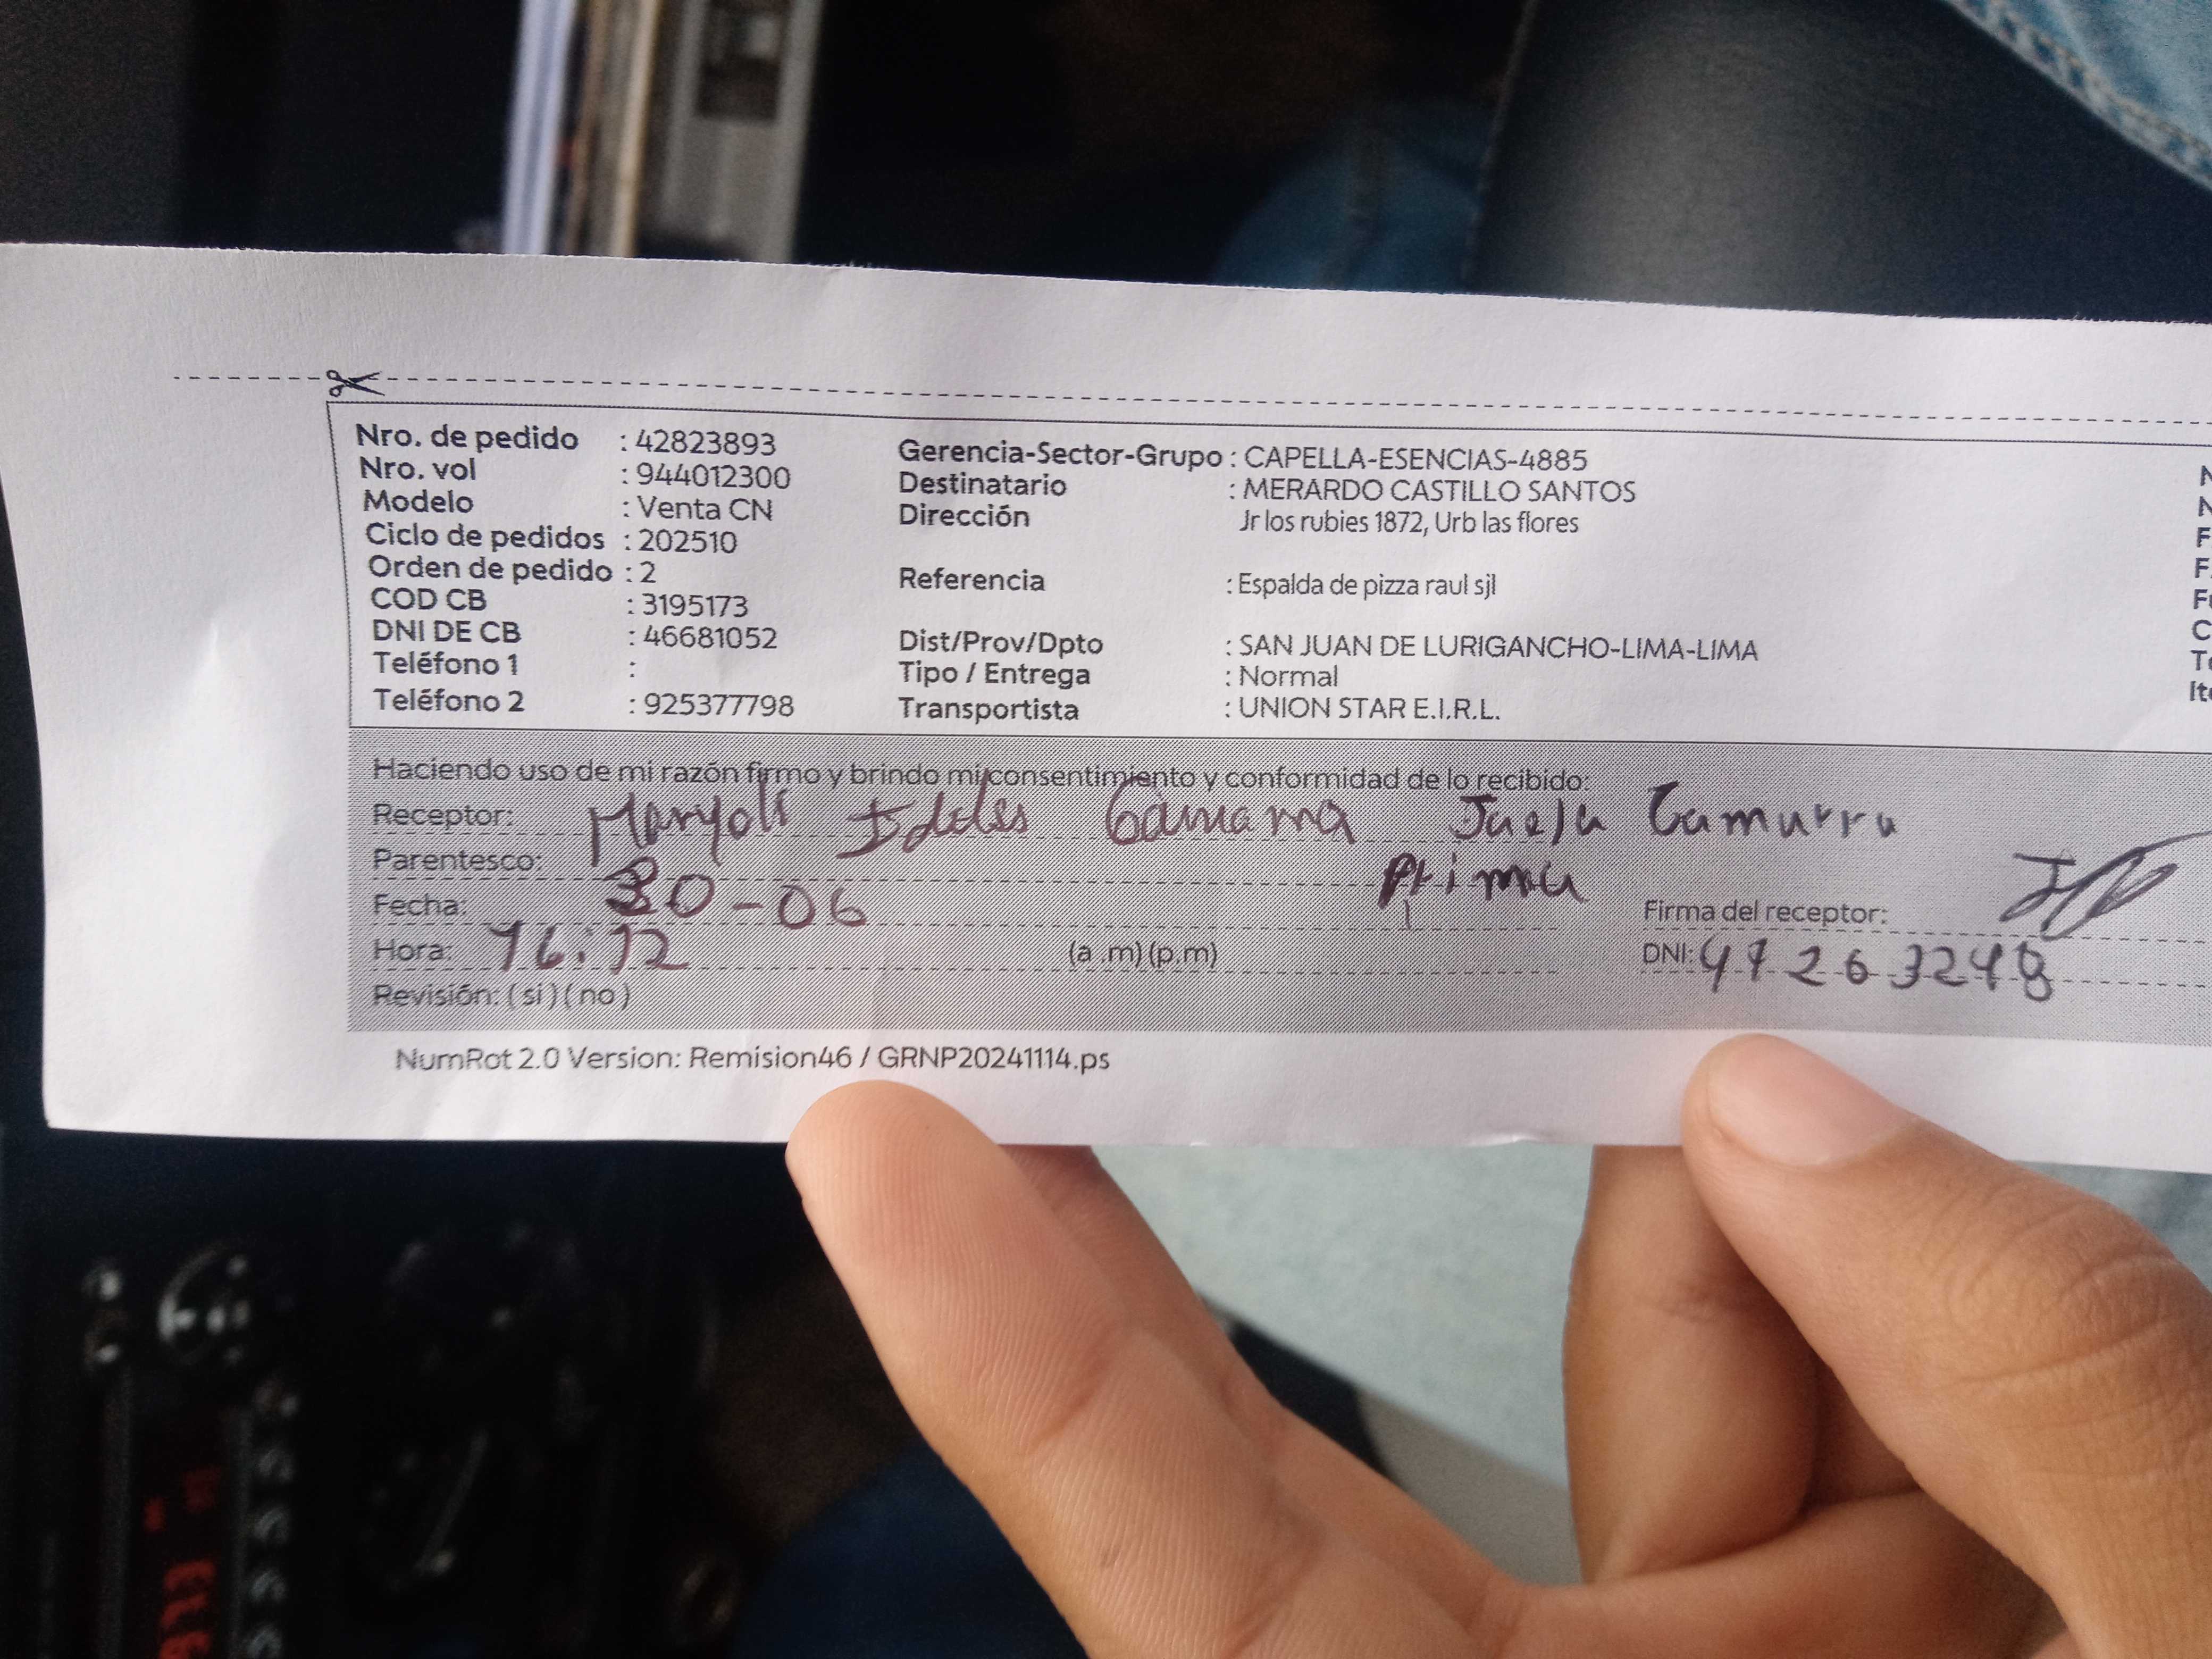 Nro. de pedido : 42823893
Nro. vol : 944012300
Modelo : Venta CN
Ciclo de pedidos : 202510
Orden de pedido : 2
COD CB : 3195173
DNI DE CB : 46681052
Teléfono 1 :
Teléfono 2 : 925377798
Gerencia-Sector-Grupo : CAPELLA-ESENCIAS-4885
Destinatario : MERARDO CASTILLO SANTOS
Dirección Jr los rubies 1872, Urb las flores
Referencia : Espalda de pizza raul sjl
Dist/Prov/Dpto : SAN JUAN DE LURIGANCHO-LIMA-LIMA
Tipo / Entrega : Normal
Transportista : UNION STAR E.I.R.L.
Haciendo uso de mi razón firmo y brindo mi consentimiento y conformidad de lo recibido:
Receptor: Maryoli
Parentesco: Prima
Fecha: 30-06
Firma del receptor:
Hora: 16:12 (a .m) (p.m)
DNI:
Revisión: ( si ) ( no )
NumRot 2.0 Version: Remision46 / GRNP20241114.ps